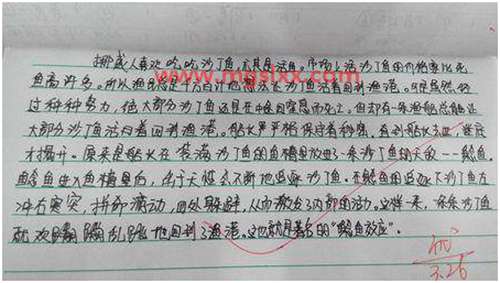 挪威人喜欢吃沙丁鱼,尤其是活鱼。市场上活沙丁鱼的价格要比死
鱼高许多。所以渔民总是千方百计地想让沙丁鱼活着回到渔港。可是虽然经
过种种努力,绝大部分沙丁鱼还是在中途因窒息而死亡。但却有一条渔船总能让
大部分沙丁鱼活着回到渔港。船长严格保守着秘密。直到船长去世,谜底
才揭开。原来是船长在装满沙丁鱼的鱼槽里放进一条沙丁鱼的天敌——鲶鱼。
鲶鱼进入鱼槽里后,由于天性会不断地追逐沙丁鱼。在鲶鱼的追逐下沙丁鱼左
冲右突,拼命游动,四处躲避,从而激发了内部的活力。这样一来,一条条沙丁鱼
就欢蹦乱跳地回到了渔港。这也就是著名的“鲶鱼效应”。
www.mgslxx.com
优
3.26